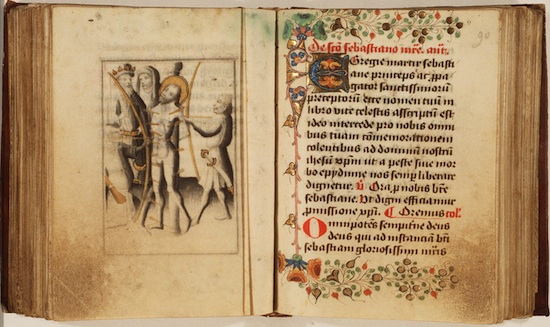 90
De scō sebastiano mr̄e. ant.
Egregie martir sebasti
ane princeps ac ꝓpa
gator sanctissimorū
preceptorū ecce nomen tuū in
libro vite celestis asscriptū est
ideo intercede pro nobis omni
bus tuam cōmemorationem
colentibus ad dominū nostrū
ihesū xp̄m ut a peste siue mor
bo epydimie nos semꝑ liberare
dignetur. V Ora ꝓ nobis bt̄e
sebastiane. Ut digni efficiamur
ꝓmissione xp̄i. Oremus col.
Omnipotēs sempit̄ne deus
qui ad instanciam bt̄i
sebastiani gloriosissimi mr̄is